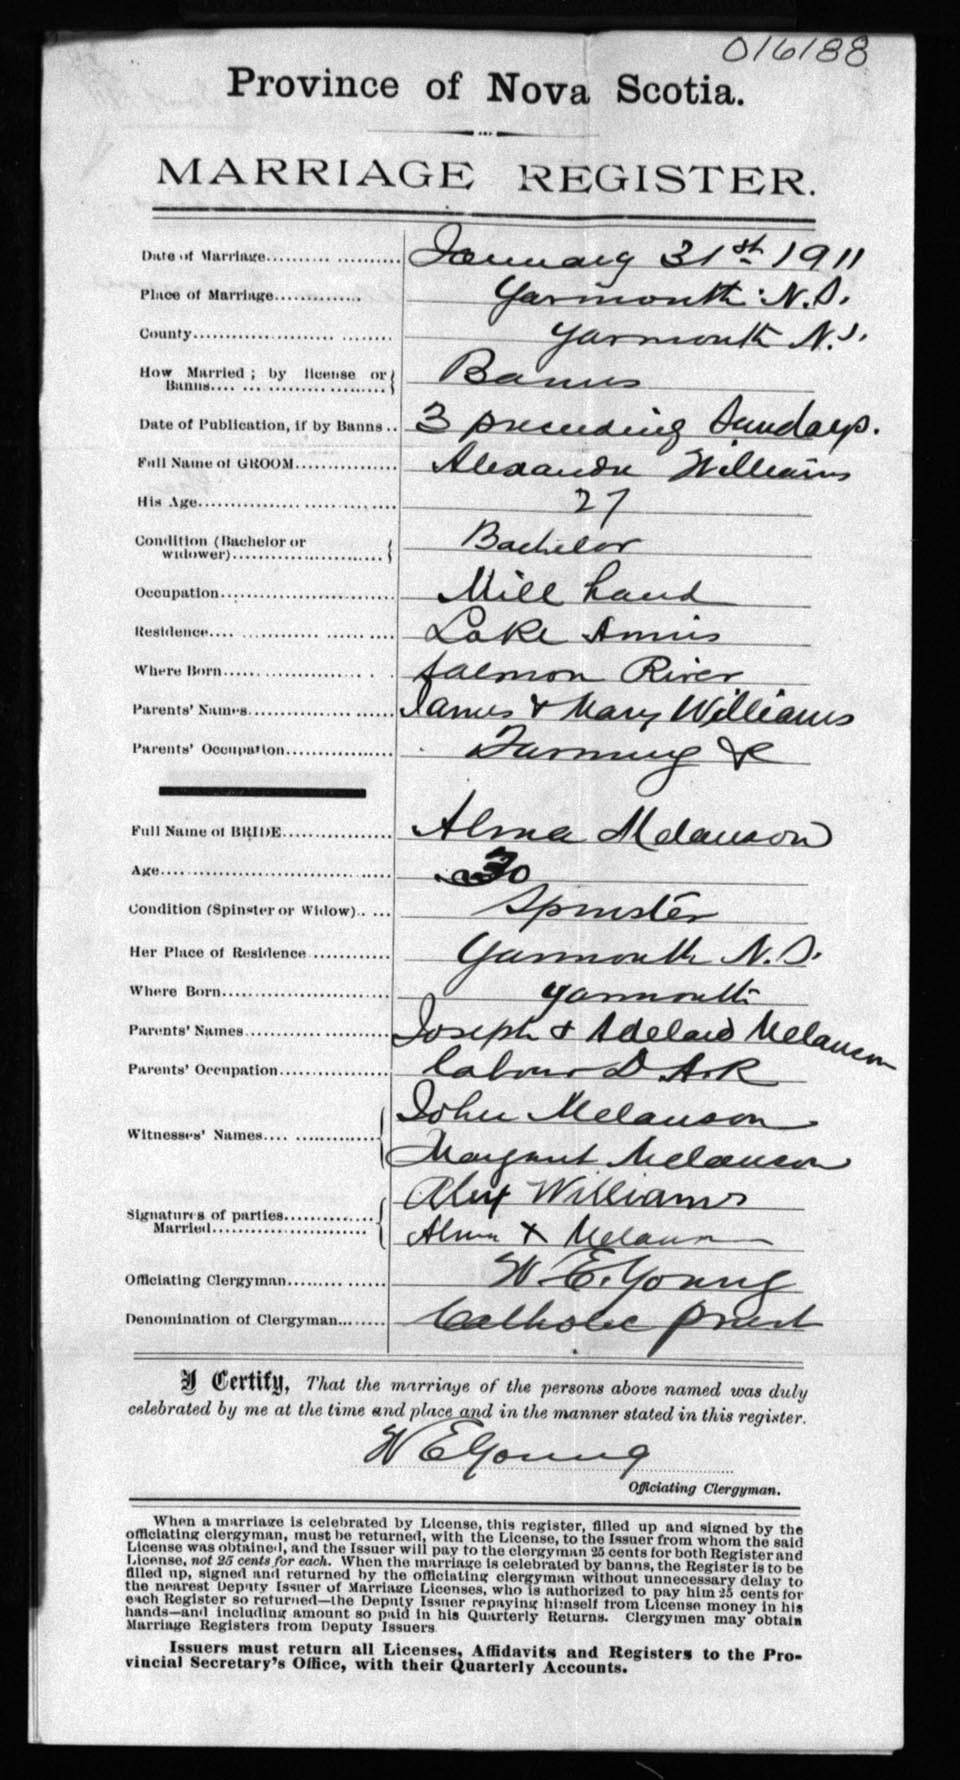 016188
Province of Nova Scotia.
MARRIAGE REGISTER.
Date of Marriage.................. January 31st 1911
Place of Marriage............. Yarmouth N.S.
County............................ Yarmouth N.S.
How Married ; by license or
Banns.... ... ............ .......... Banns
Date of Publication, if by Banns .. 3 preceeding Sundays.
Full Name of GROOM............... Alexander Williams
His Age............................. 27
Condition (Bachelor or
widower)....................... Bachelor
Occupation.......................... Mill hand
Residence.... .............. ... ...... Lake Annis
Where Born...... ............. . . Salmon River
Parents' Names................. ...... James & Mary Williams
Parents' Occupation............... Farming &
Full Name of BRIDE................ Alma Melanson
Age.................................. 30
Condition (Spinster or Widow).. ... Spinster
Her Place of Residence ........... Yarmouth N.S.
Where Born......................... Yarmouth
Parents' Names..................... Joseph & Adelaid Melanson
Parents' Occupation................ Labour
Witnesses' Names.... .............. John Melanson
Margaret Melanson
Signatures of parties.............. Alex Williams
Married........................ Alma X Melanson
Officiating Clergyman......... ....... W. E. Young
Denomination of Clergyman......... Catholic priest
I Certify, That the marriage of the persons above named was duly
celebrated by me at the time and place and in the manner stated in this register.
W E Young
Officiating Clergyman.
When a marriage is celebrated by License, this register, filled up and signed by the
officiating clergyman, must be returned, with the License, to the Issuer from whom the said
License was obtained, and the Issuer will pay to the clergyman 25 cents for both Register and
License, not 25 cents for each. When the marriage is celebrated by banns, the Register is to be
filled up, signed and returned by the officiating clergyman without unnecessary delay to
the nearest Deputy Issuer of Marriage Licenses, who is authorized to pay him 25 cents for
each Register so returned—the Deputy Issuer repaying himself from License money in his
hands—and including amount so paid in his Quarterly Returns. Clergymen may obtain
Marriage Registers from Deputy Issuers
Issuers must return all Licenses, Affidavits and Registers to the Pro-
vincial Secretary's Office, with their Quarterly Accounts.